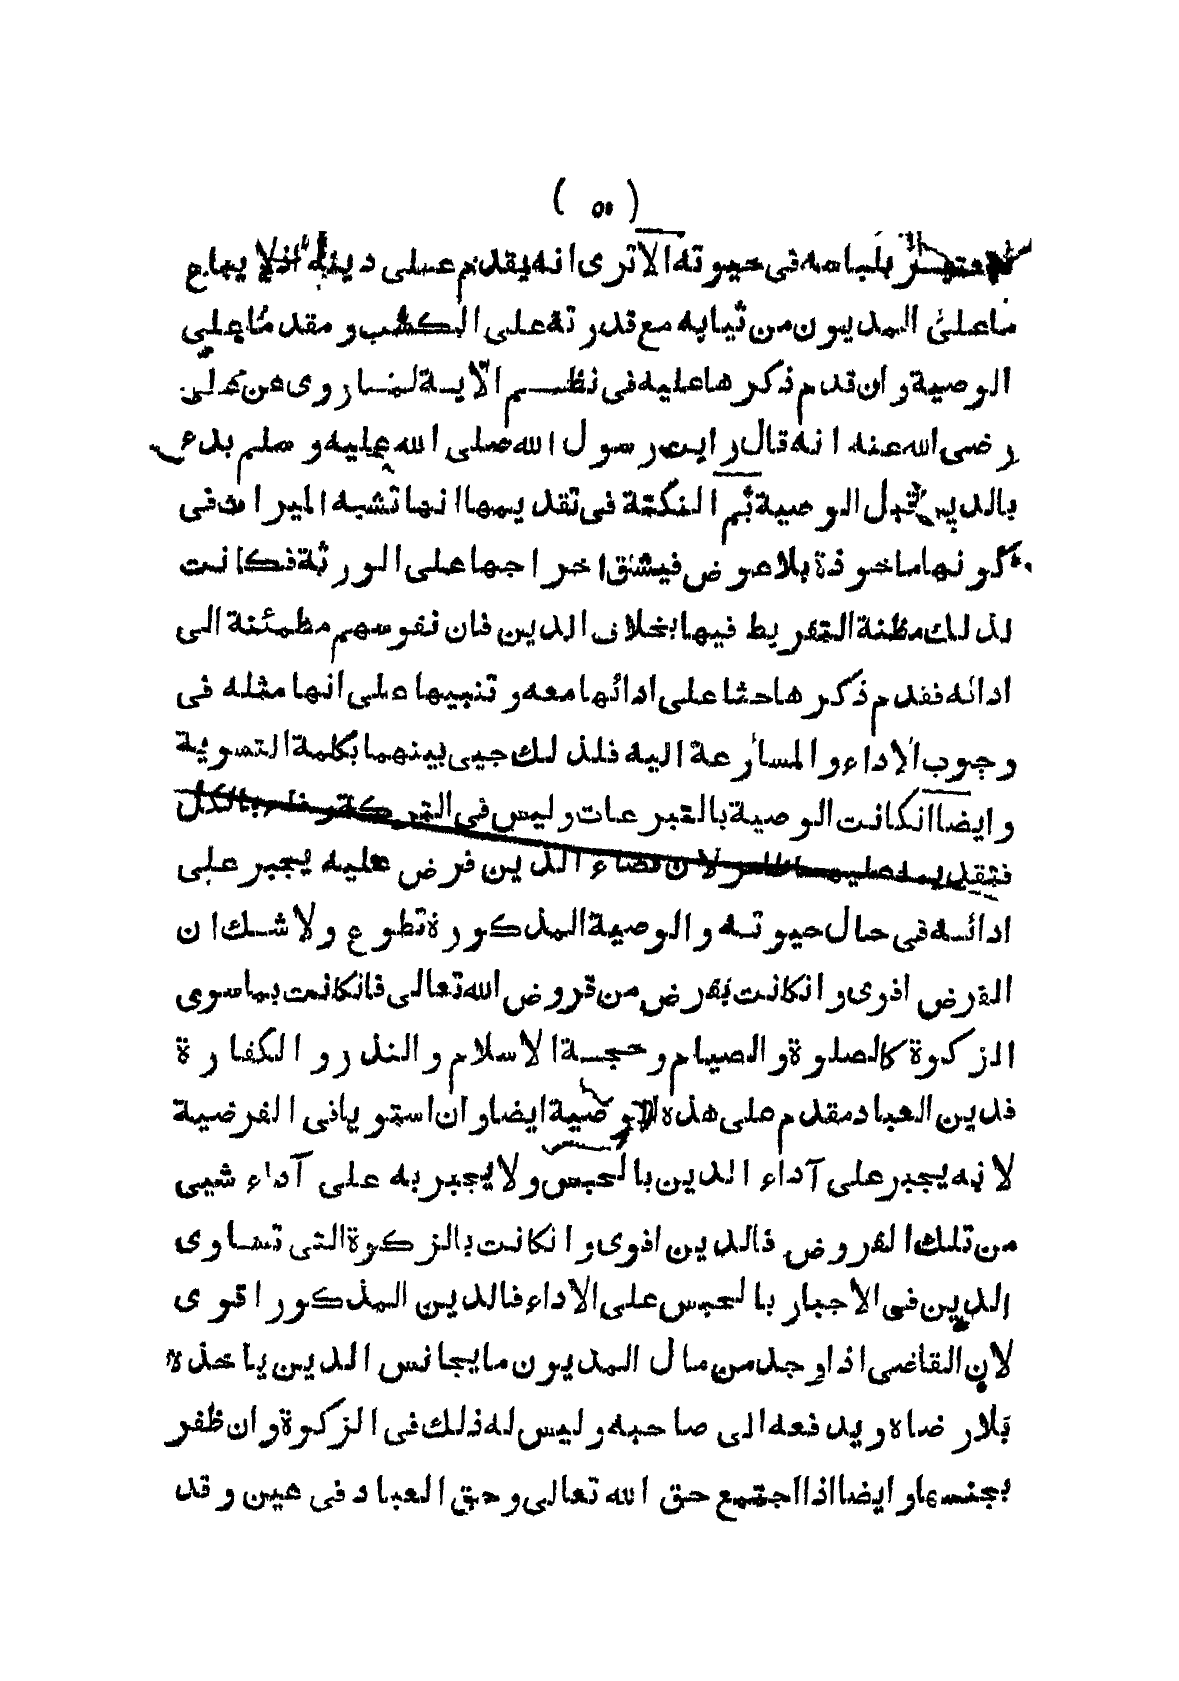 ( ٥ )
بلباسه فى حيوته الا ترى انه يقدم على دينه اذ لا يباع
ما على المديون من ثيابه مع قدرته على الكسب و مقدما على
الوصية و ان قدم ذكرها عليه فى نظم الآية لما روى عن على
رضى الله عنه انه قال رايت رسول الله صلى الله عليه و سلم بدء
بالدين قبل الوصية ثم النكتة فى تقديمها انها تشبه الميراث فى
كونها ماخوذة بلا عوض فيشق اخراجها على الورثة فكانت
لذلك مظنة التفريط فيها بخلاف الدين فان نفوسهم مطمئنة الى
ادائه فقدم ذكرها حثا على ادائها معه و تنبيها على انها مثله فى
وجوب الاداء و المسارعة اليه فلذلك جيى بينهما بكلمة التسوية
و ايضا انكانت الوصية بالتبرعات و ليس فى التركة وفاء بالكل
فتقديمه عليها ظاهر لان قضاء الدين فرض عليه يجبر على
ادائه فى حال حيوته و الوصية المذكورة تطوع و لا شك ان
الفرض اقوى و انكانت بفرض من فروض الله تعالى فانكانت بما سوى
الزكوة كالصلوة و الصيام و حجة الاسلام و النذر و الكفارة
فدين العباد مقدم على هذه الوصية ايضا و ان استويا فى الفرضية
لانه يجبر على آداء الدين بالحبس و لا يجبر به على آداء شيى
من تلك الفروض فالدين اقوى و انكانت بالزكوة التى تساوى
الدين فى الاجبار بالحبس على الاداء فالدين المذكور اقوى
لان القاضى اذا وجد من مال المديون ما يجانس الدين ياخذه
بلا رضاه و يدفعه الى صاحبه و ليس له ذلك فى الزكوة و ان ظفر
بجنسها و ايضا اذا اجتمع حق الله تعالى و حق العباد فى عين و قد